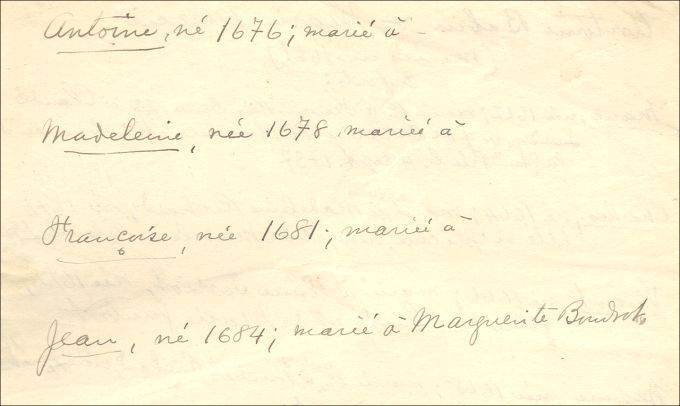 Antoine, né 1676; marié à -
Madeleine, née 1678 mariée à
Françoise, née 1681; mariée à
Jean, né 1684; marié à Marguerite Boudrot